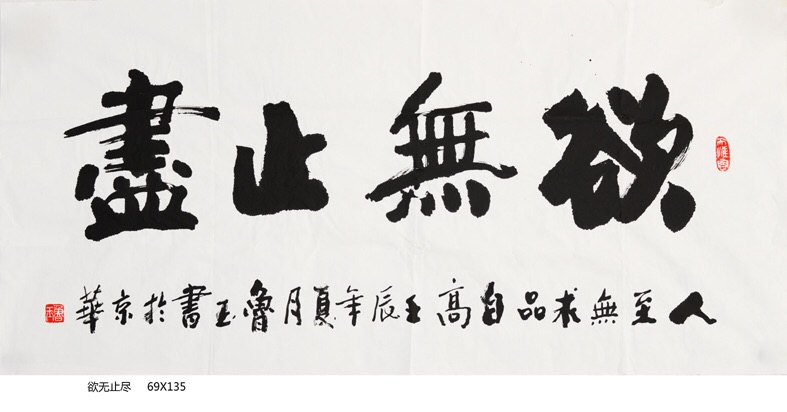 欲無止盡
人至無求品自高壬辰年夏月魯玉書於京華
欲无止尽 69X135